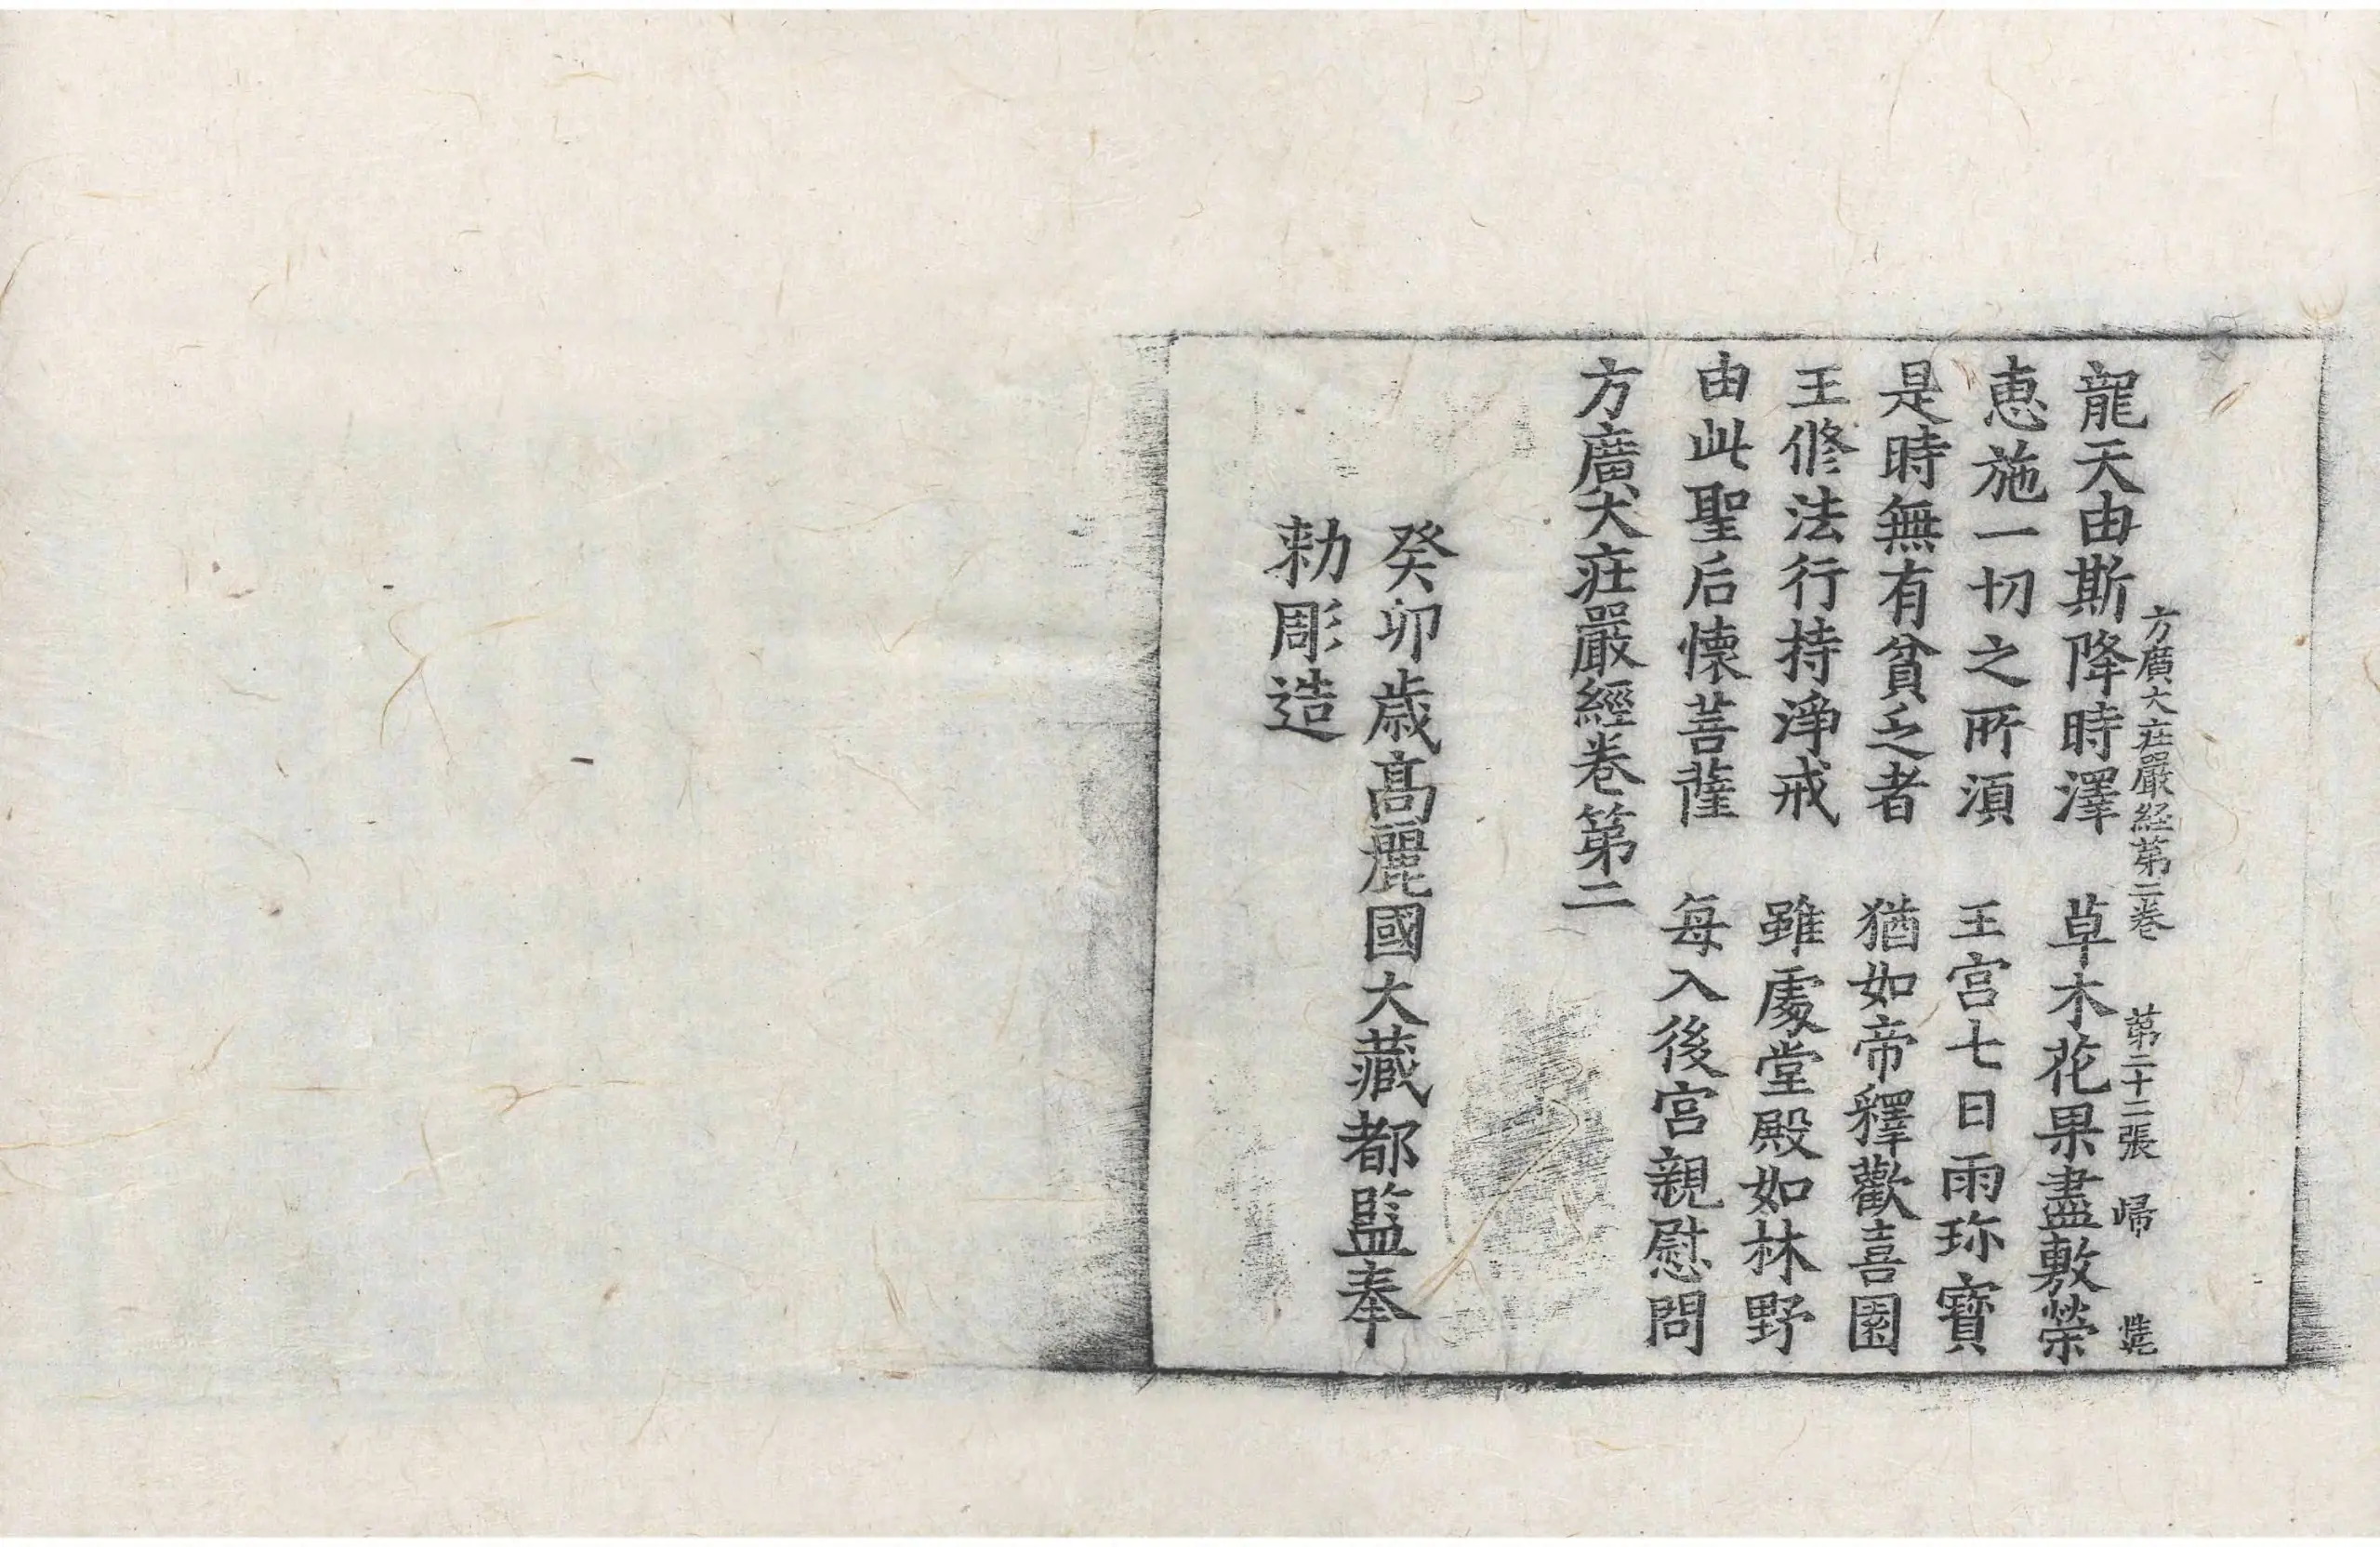 方廣大荘嚴経苐二巻 苐二十二張 㱕
龍天由斯降時澤 草木花果盡敷榮
恵施一切之所湏 王宮七日雨珎寶
是時無有貧乏者 猶如帝釋歡喜園
王修法行持淨戒 雖處堂殿如林野
由此聖后懷菩薩 每入後宮親慰問
方廣大莊嚴經卷第二
癸卯歳高麗國大藏都監奉
勅彫造